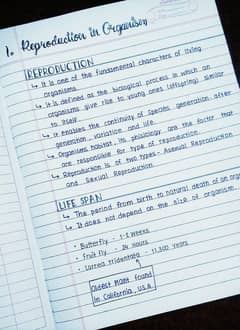 1. Reproduction in Organism
REPRODUCTION
↳ It is one of the fundamental characters of living
organisms
↳ It is defined as the biological process in which an
organisms give rise to young ones (offspring) similar
to itself.
↳ It enables the continuity of species, generation after
generation, variation and life.
↳ Organisms habitat, its physiology are the factor that
are responsible for type of reproduction.
↳ Reproduction is of two types - Asexual Reproduction
and Sexual Reproduction.
LIFE SPAN
↳ The period from birth to natural death of an
↳ It does not depend on the size of organism.
• Butterfly - 1-2 weeks
• Fruit fly - 24 hours
• Larrea tridentata - 11,300 years
Oldest plant found
in California, U.S.A